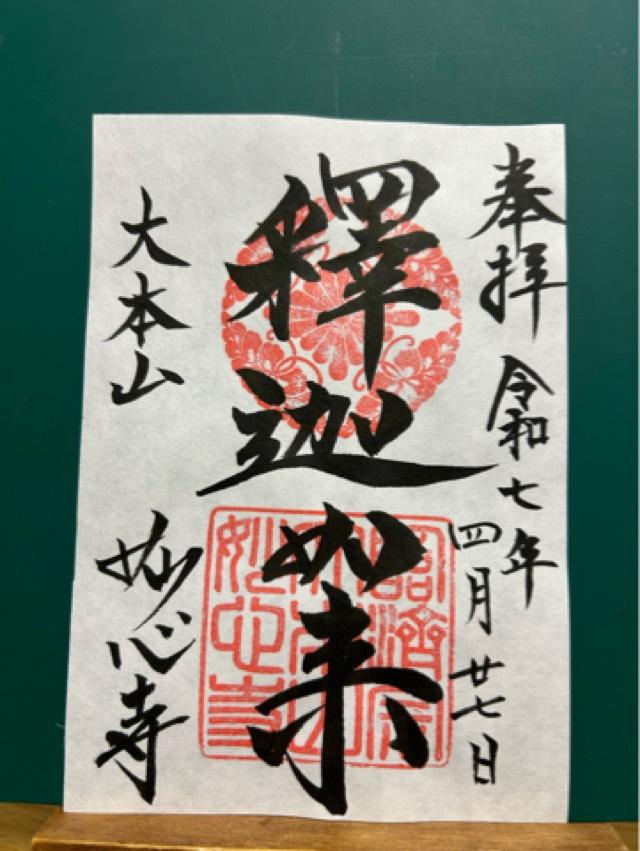 奉拝 令和七年
四月廿七日
釋迦如来
大本山 妙心寺